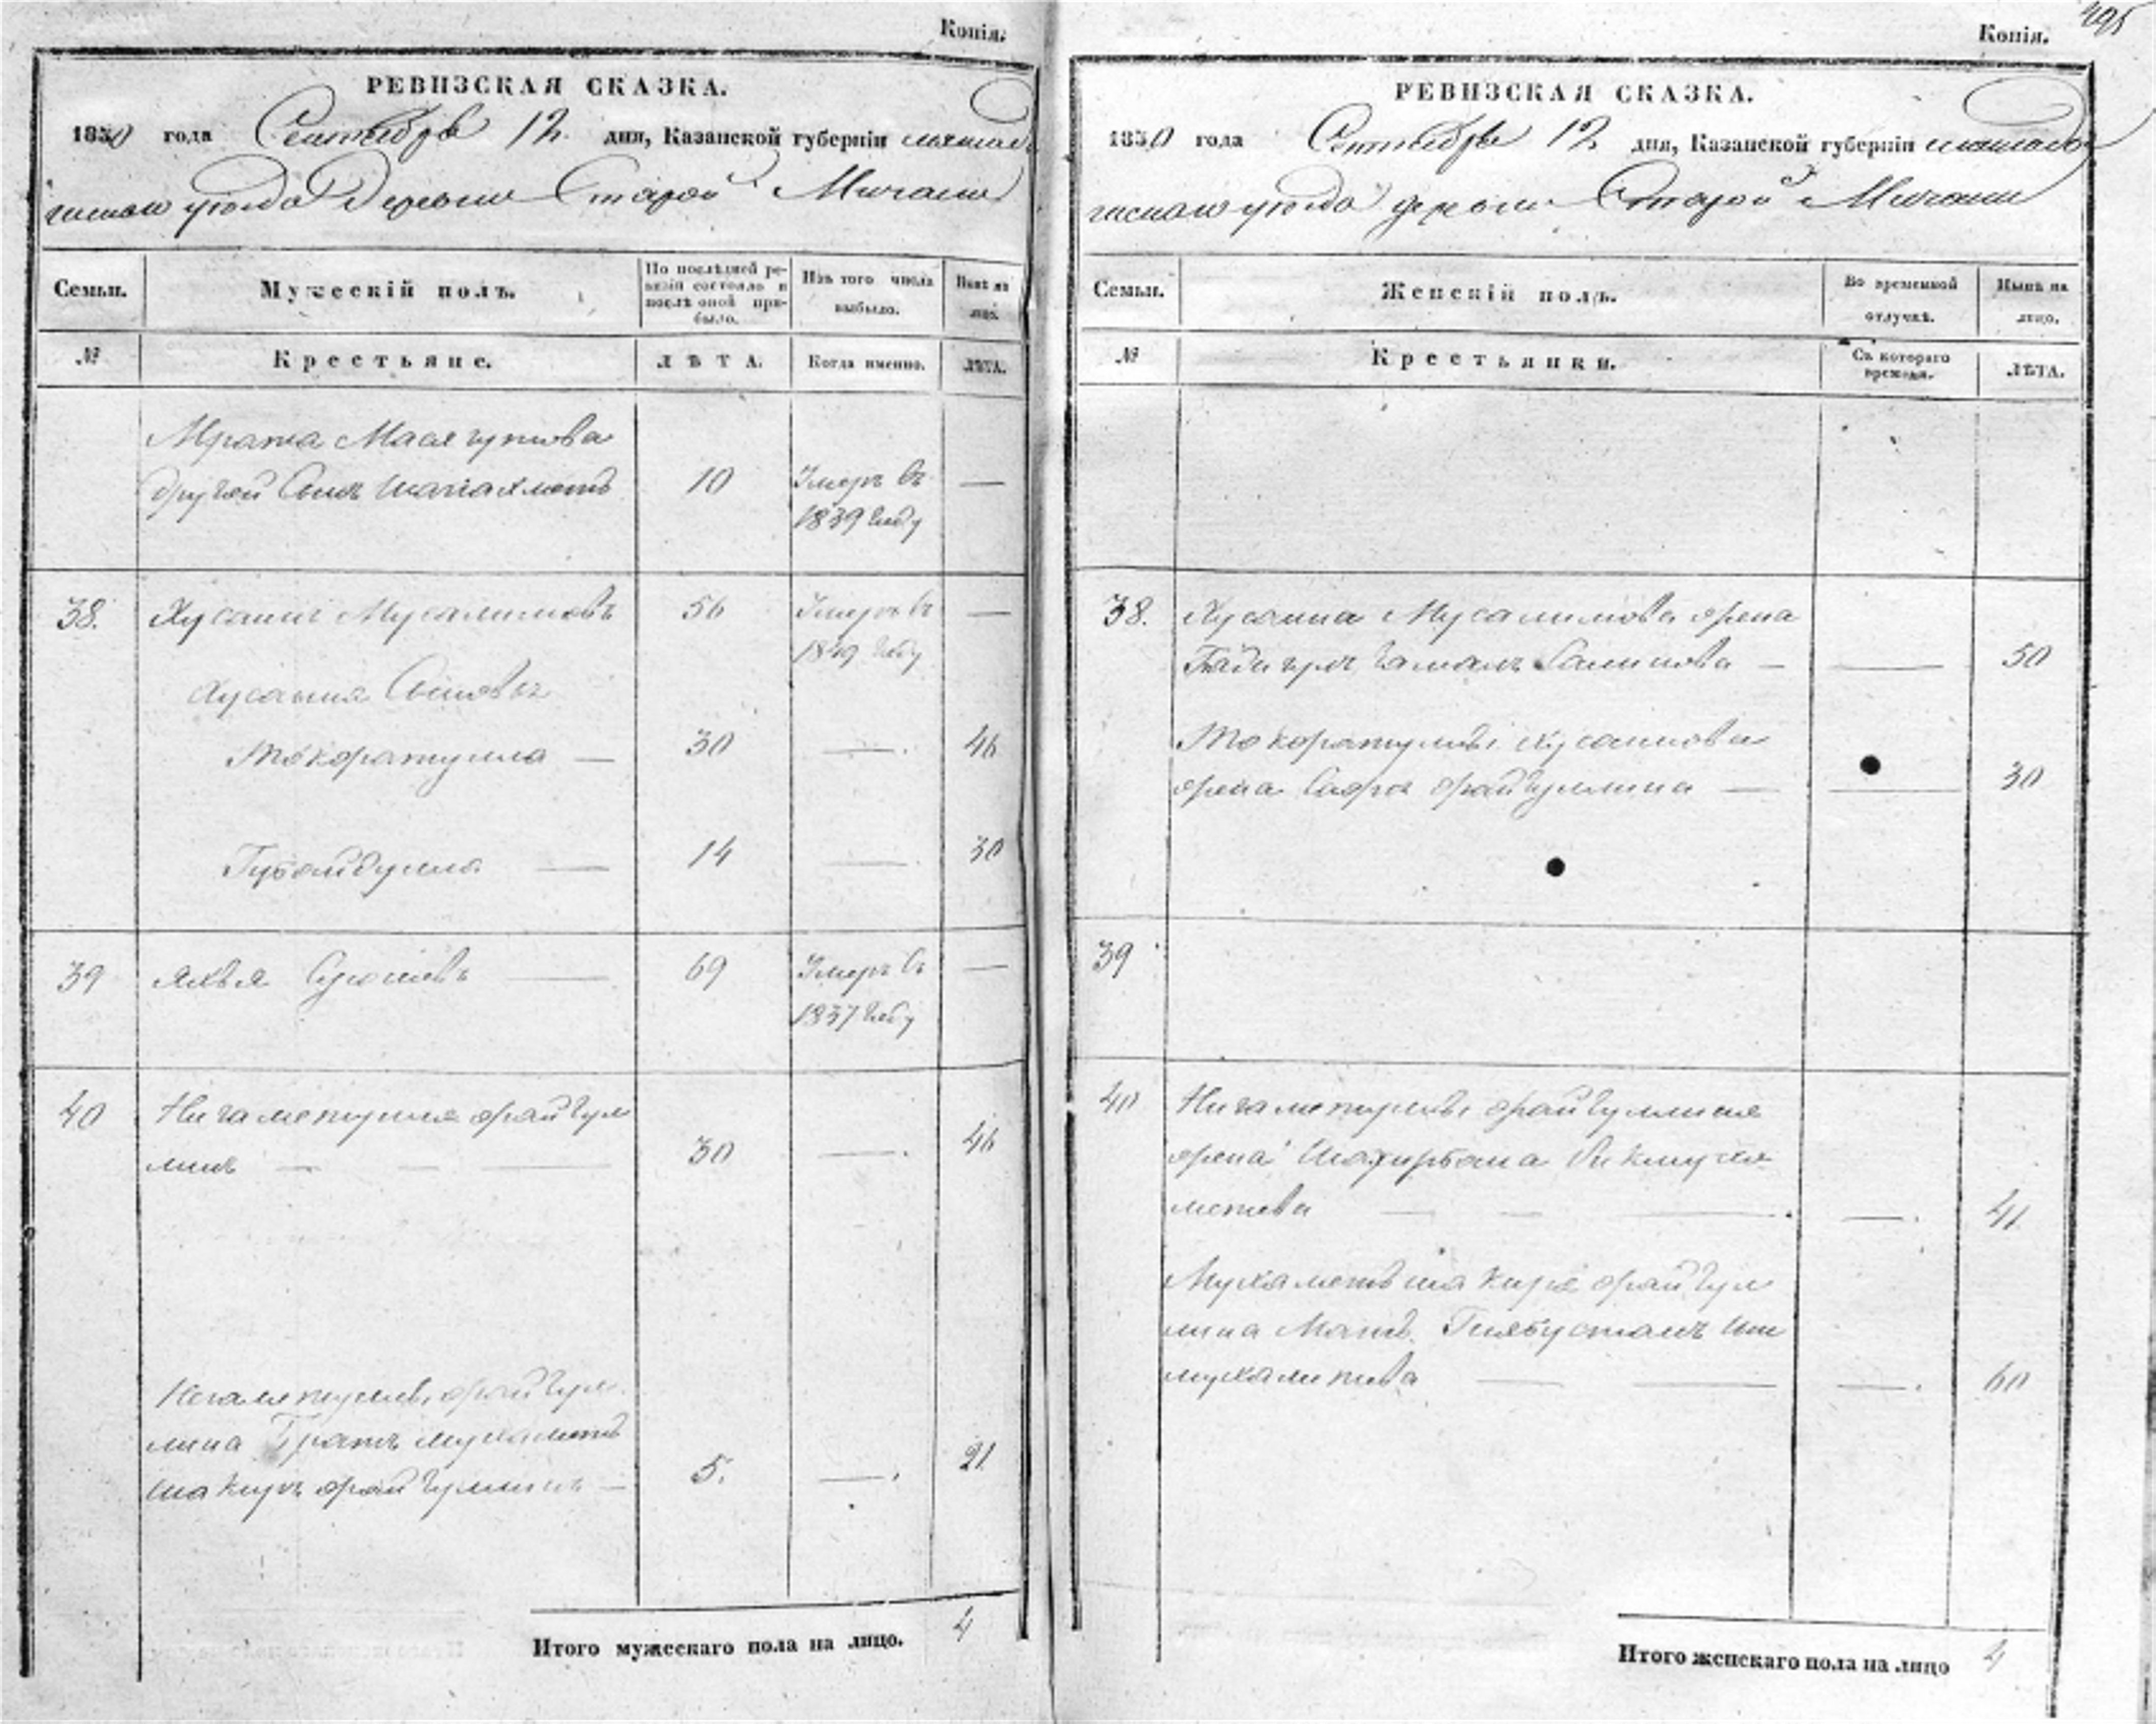 Копія.
РЕВИЗСКАЯ СКАЗКА.
1850 года Сентября 12 дня, Казанской губерніи мамад
ышскаго уѣзда Деревни Старой Мичани
Семьи. Мужескій полъ. По послѣдней ре-
визіи состояло и
послѣ оной при-
было. Изъ того числа
выбыло. Нынѣ на
лицо.
№ Крестьяне. ЛѢТА. Когда именно. ЛѢТА.
другой Сынъ Шагіахметъ 10 Умеръ въ —
1839 году
38. Хусаинъ Мусалимовъ 56 Умеръ въ —
1849 году
Хусаина Сыновья
30 —. 46
Губайдулла — 14 —. 30
39 Яхья — 69 Умеръ въ —
1837 году
40 Нигаметулла Файзул
линъ — — — 30 —. 46
Нигаметуллы Файзул
лина Братъ Мухаметъ
Шакиръ Файзуллинъ — 5. —. 21
Итого мужескаго пола на лицо. 4
495
Копія.
РЕВИЗСКАЯ СКАЗКА.
1850 года Сентября 12 дня, Казанской губерніи мамады
шскаго уѣзда деревни Старой Мичани
Семьи. Женскій полъ. Во временной
отлучкѣ. Нынѣ на
лицо.
№ Крестьянки. Съ котораго
времени. ЛѢТА.
38. Хусаина Мусалимова жена
— — 50
Хусаинова
жена Файзуллина — — 30
39
40 Нигаметуллы Файзуллина
жена Бикмуха
метева — — — —. 41
Мухаметъ шакира Файзул
лина Мать Иш
мухаметева — — —. 60
Итого женскаго пола на лицо 4